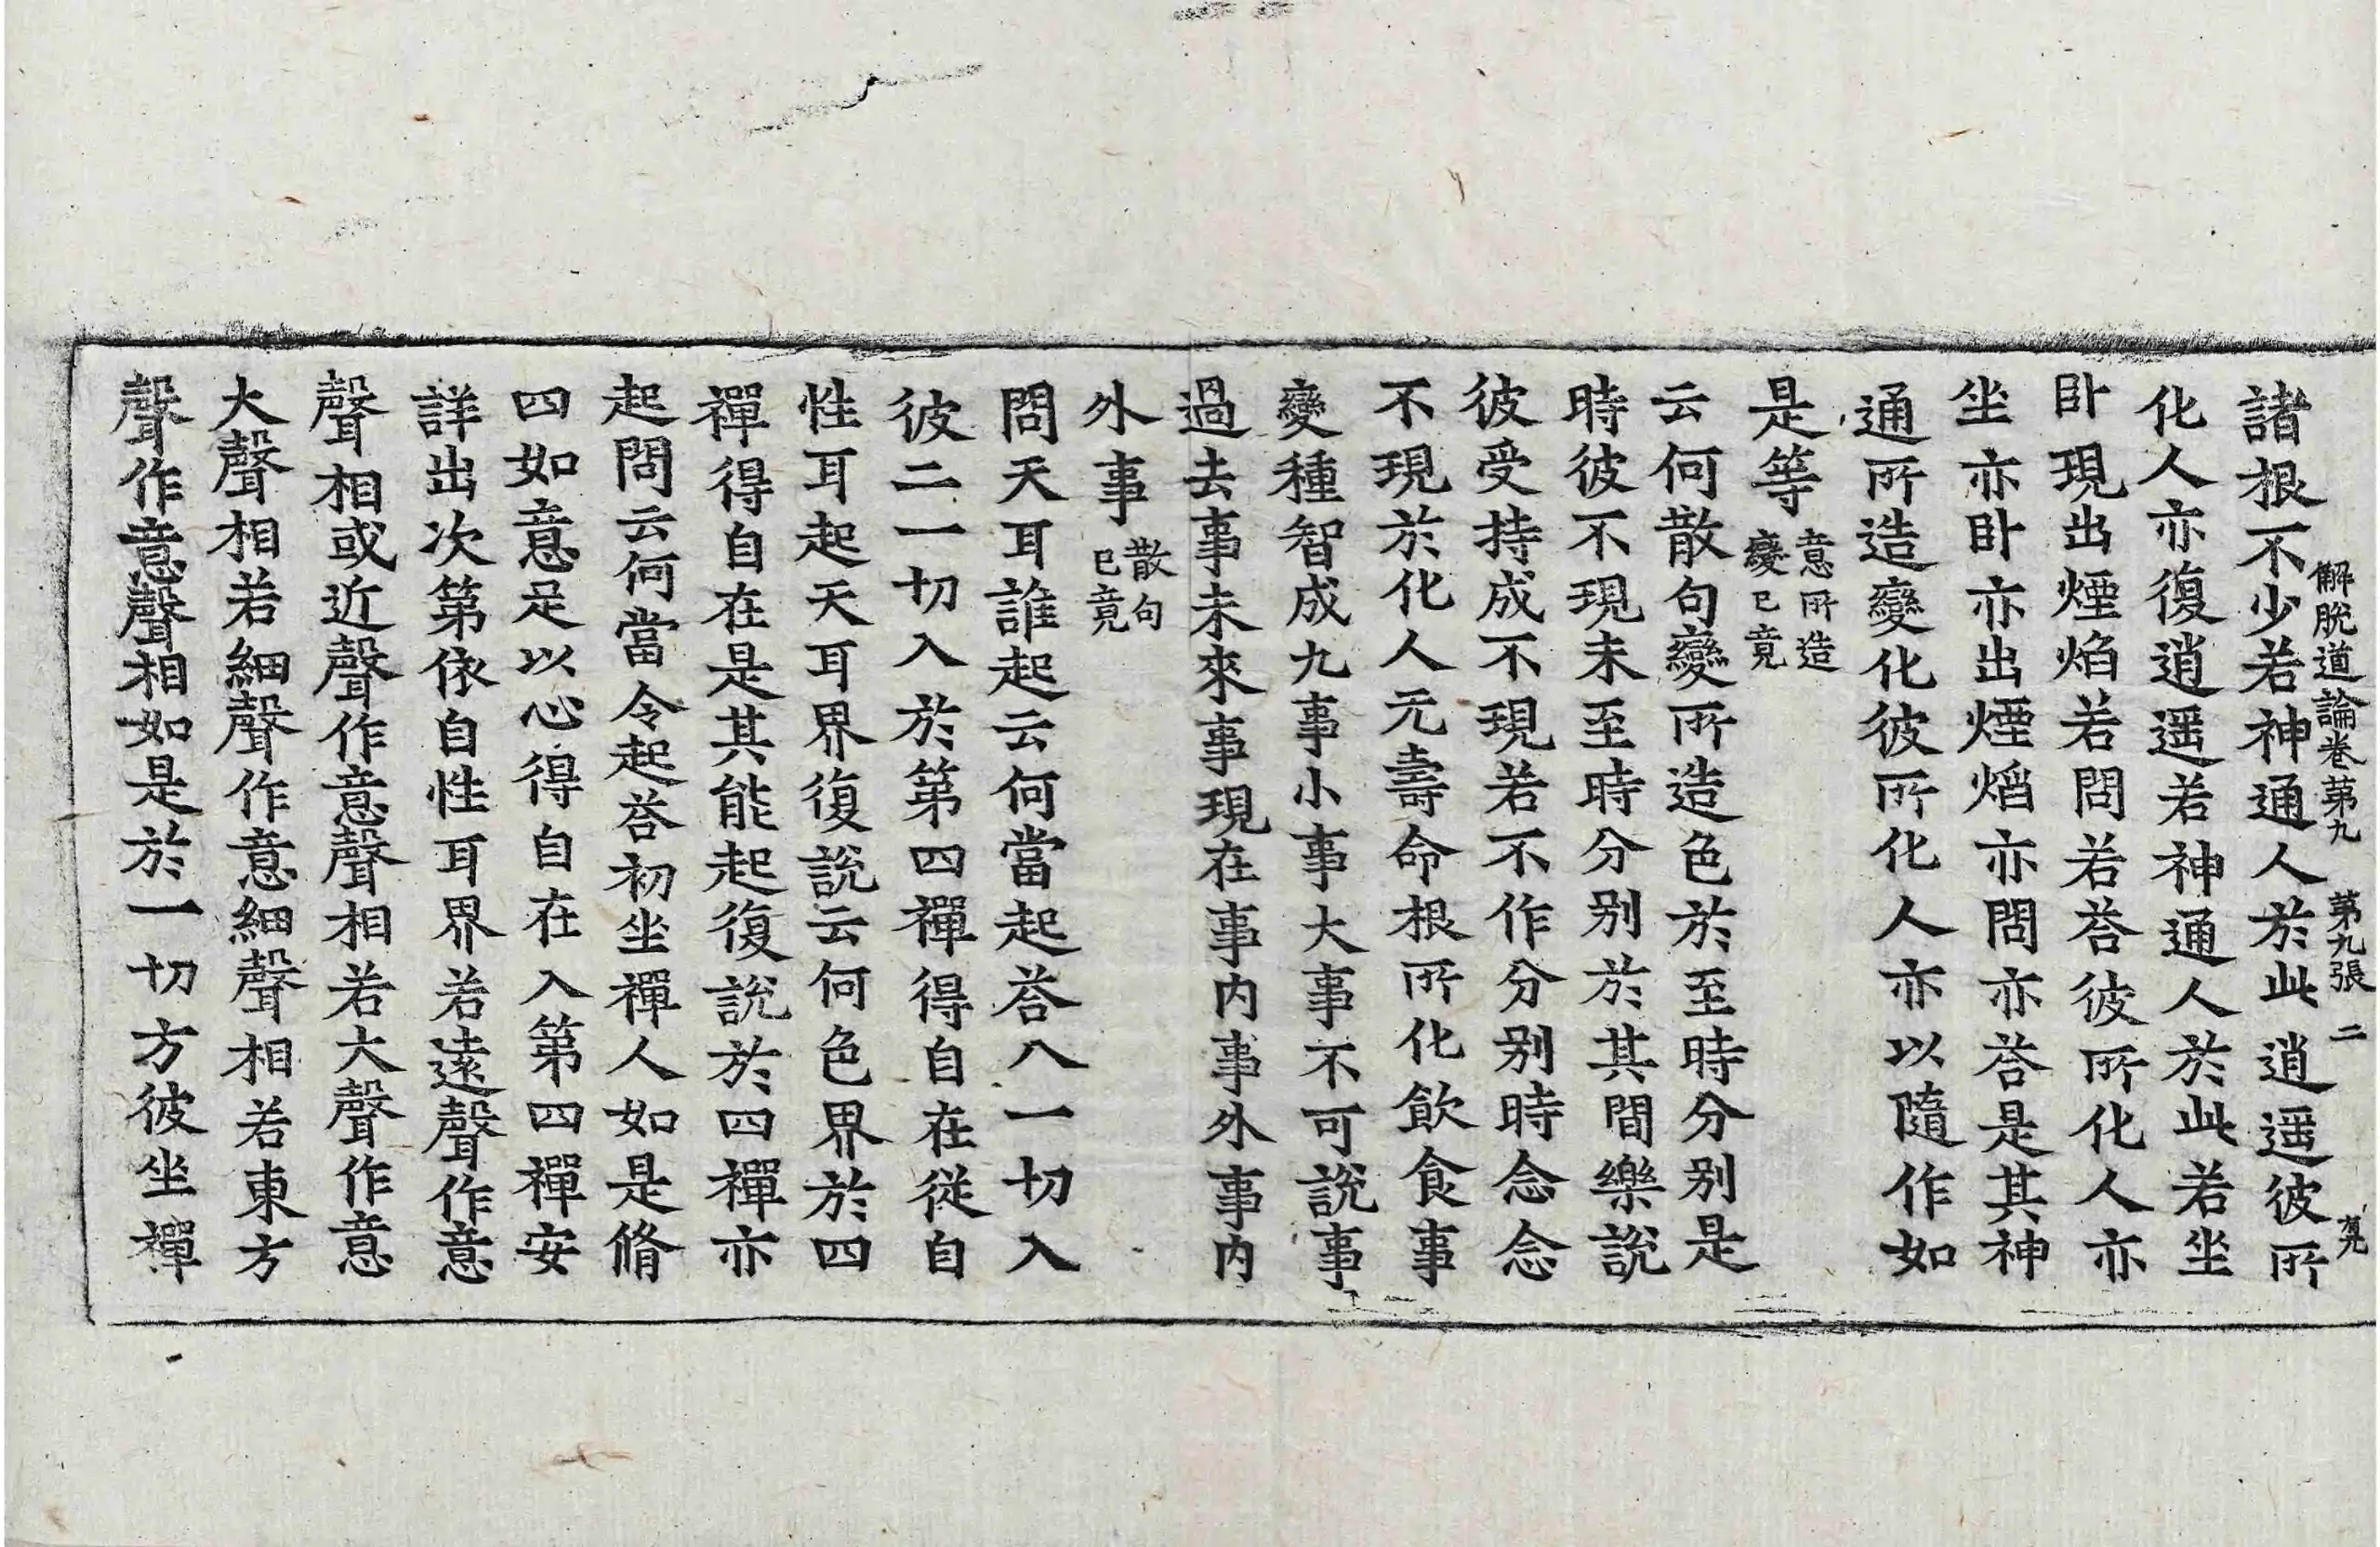 解脫道論卷第九 第九張 二
諸根不少若神通人於此逍遥彼所
化人亦復逍遥若神通人於此若坐
卧現出煙焰若問若荅彼所化人亦
坐亦卧亦出煙熖亦問亦荅是其神
通所造變化彼所化人亦以隨作如
是等意所造變已竟
云何散句變所造色於至時分别是
時彼不現未至時分别於其間樂說
彼受持成不現若不作分别時念念
不現於化人元壽命根所化飲食事
變種智成九事小事大事不可說事
過去事未來事現在事内事外事内
外事散句已竟
問天耳誰起云何當起荅八一切入
彼二一切入於第四禪得自在從自
性耳起天耳界復說云何色界於四
禪得自在是其能起復說於四禪亦
起問云何當令起荅初坐禪人如是脩
四如意足以心得自在入第四禪安
詳出次第依自性耳界若遠聲作意
聲相或近聲作意聲相若大聲作意
大聲相若細聲作意細聲相若東方
聲作意聲相如是於一切方彼坐禪